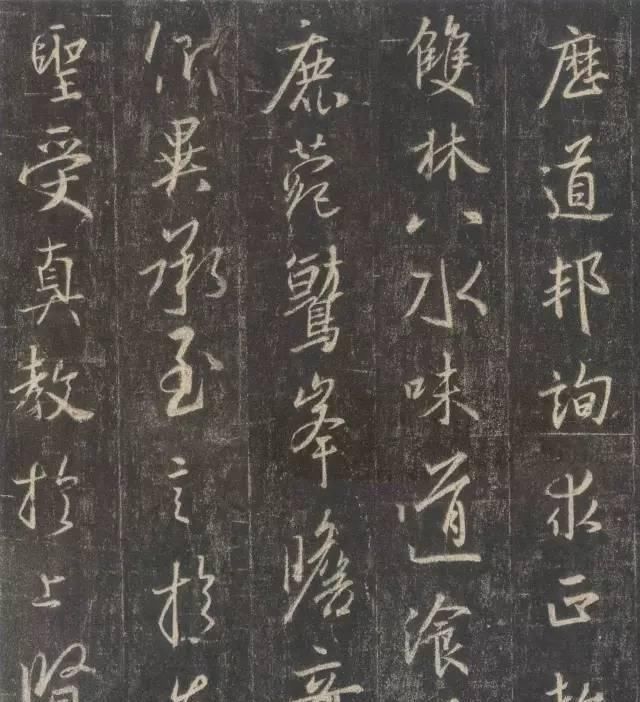 歷道邦詢求正教
雙林八水味道湌
鹿菀鷲峯瞻奇
仰異承至言於先
聖受真教於上賢